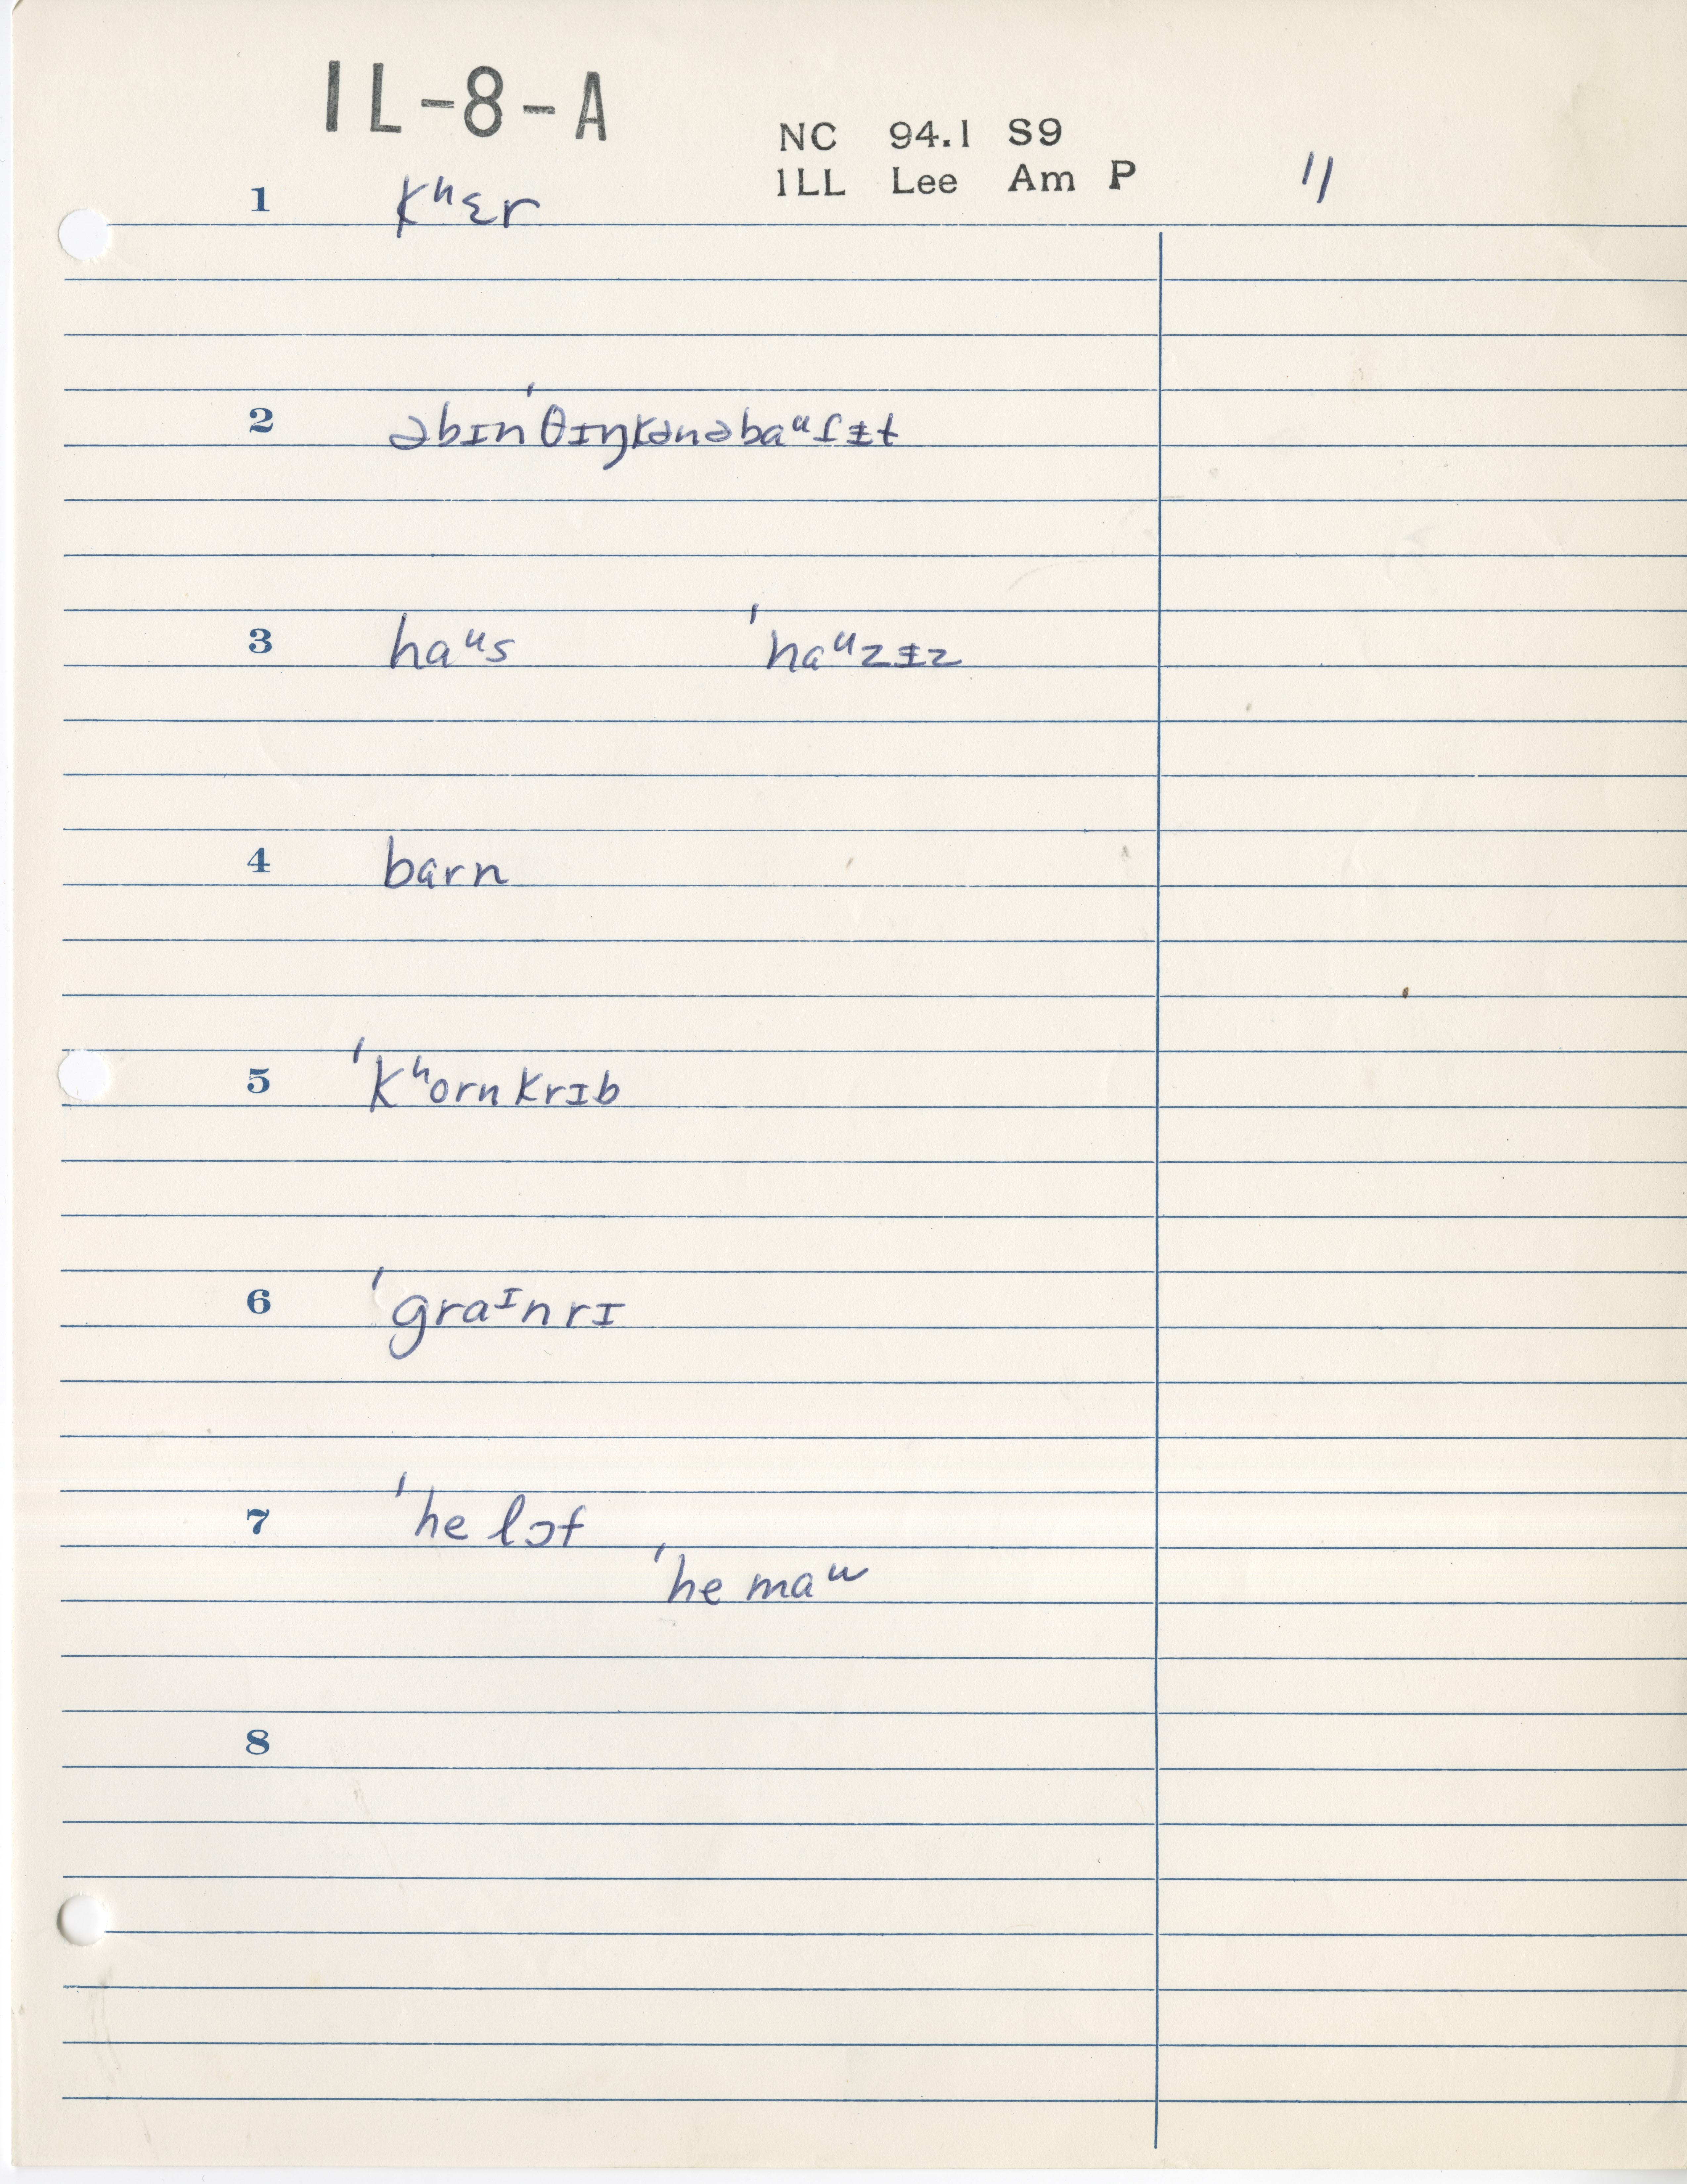 IL-8-A
NC 94.1 S9
ILL Lee Am P 11
1 kʰɛr
2 əbɪnˈθɪŋkənəbaᵘɾɨt
3 haᵘs ˈhaᵘzɨz
4 barn
5 ˈkʰornkrɪb
6 ˈgraᶦnrɪ
7 ˈhe lɔf
ˈhe maᵚ
8